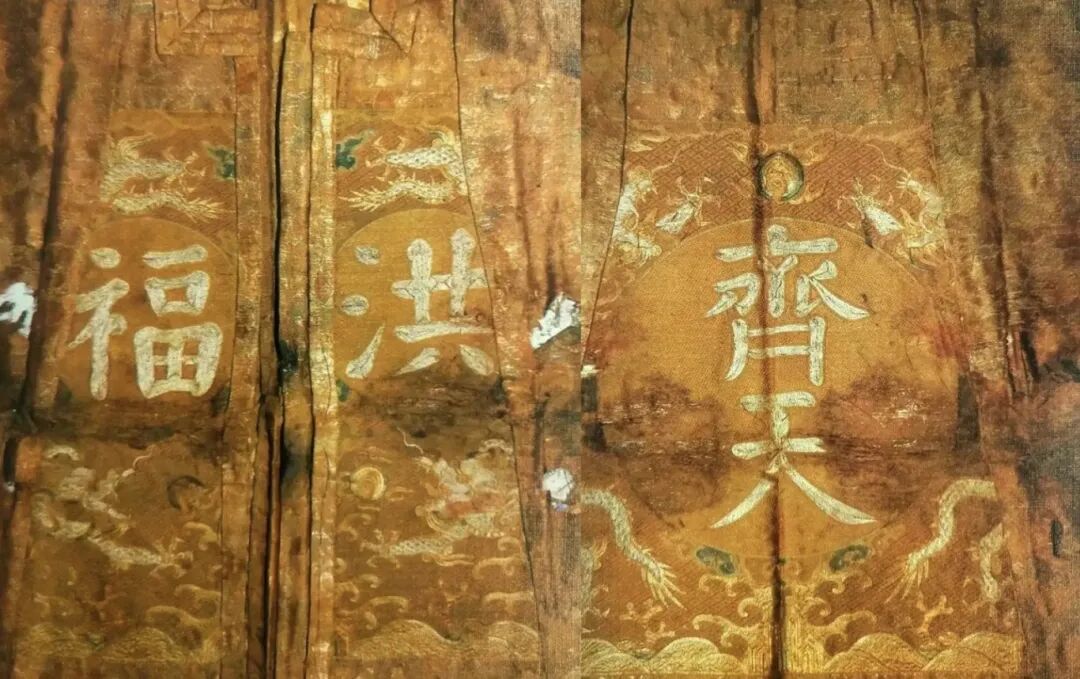 洪福
齊天